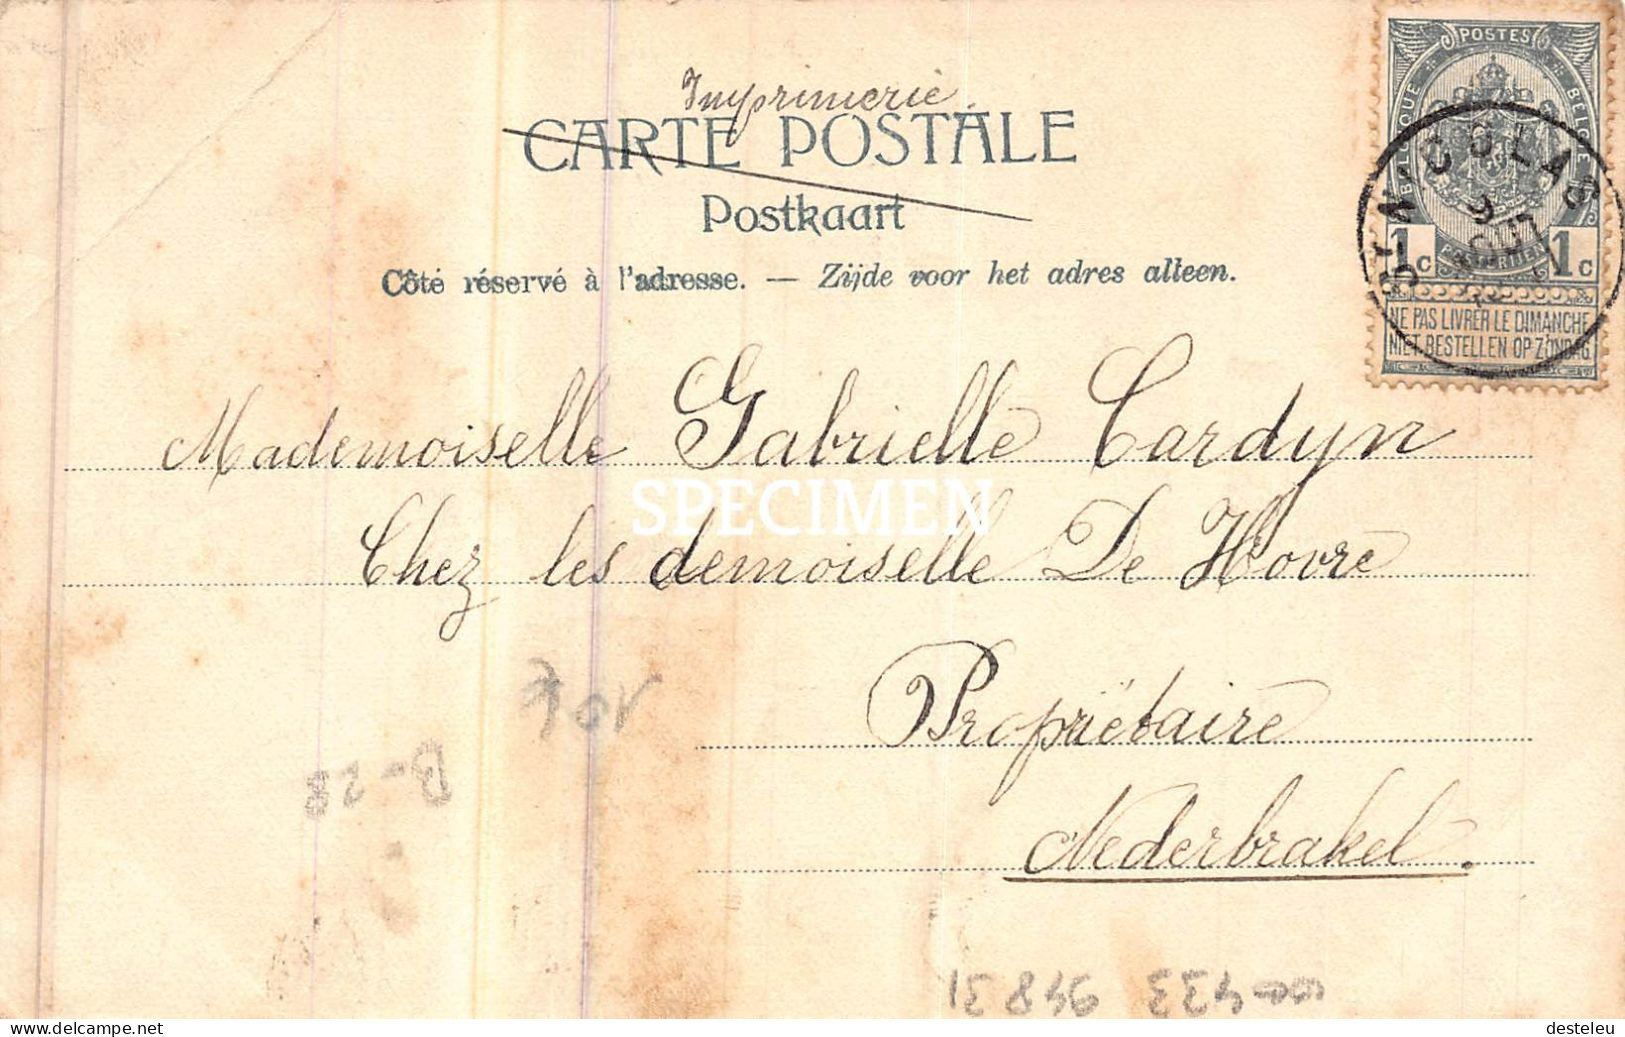 Imprimerie
CARTE POSTALE
Postkaart
Côté réservé à l'adresse. — Zijde voor het adres alleen.
POSTES
BELGIQUE BELGIE
POSTERIJEN
1c 1c
NE PAS LIVRER LE DIMANCHE
NIET BESTELLEN OP ZONDAG
ST-NICOLAS
Mademoiselle Gabrielle Cardyn
SPECIMEN
Chez les demoiselle De Hovre
Propriëtaire
Nederbrakel.
B-28
delcampe.net
desteleu